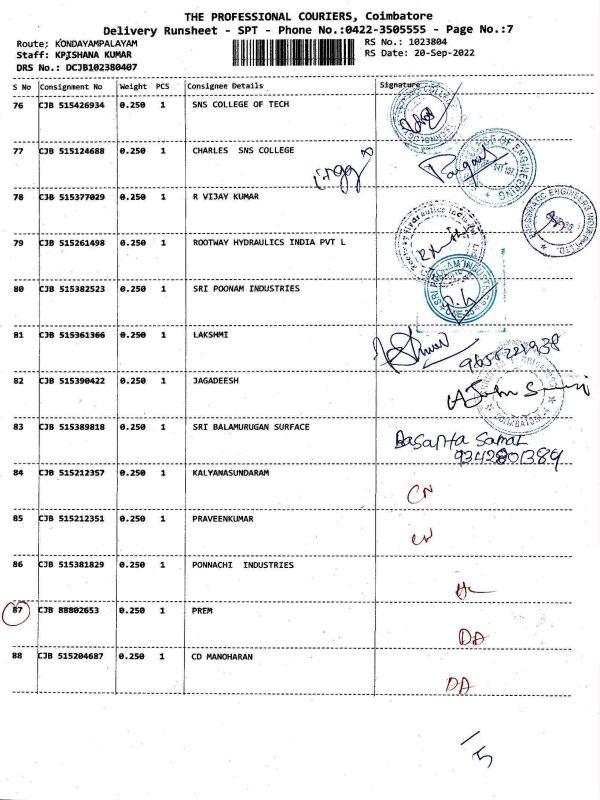 THE PROFESSIONAL COURIERS, Coimbatore
Delivery Runsheet - SPT - Phone No.:0422-3505555 - Page No.:7
Route; KONDAYAMPALAYAM
RS No.: 1023804
Staff: KPISHANA KUMAR
RS Date: 20-Sep-2022
DRS No.: DCJB102380407
S No Consignment No Weight PCS Consignee Details Signature
76 CJB 515426934 0.250 1 SNS COLLEGE OF TECH
77 CJB 515124688 0.250 1 CHARLES SNS COLLEGE
78 CJB 515377029 0.250 1 R VIJAY KUMAR
79 CJB 515261498 0.250 1 ROOTWAY HYDRAULICS INDIA PVT L
80 CJB 515382523 0.250 1 SRI POONAM INDUSTRIES
81 CJB 515361366 0.250 1 LAKSHMI
82 CJB 515390422 0.250 1 JAGADEESH
83 CJB 515389818 0.250 1 SRI BALAMURUGAN SURFACE
Basanta Samal
9342801389
84 CJB 515212357 0.250 1 KALYANASUNDARAM
CN
85 CJB 515212351 0.250 1 PRAVEENKUMAR
CN
86 CJB 515381829 0.250 1 PONNACHI INDUSTRIES
87 CJB 88802653 0.250 1 PREM
DA
88 CJB 515204687 0.250 1 CD MANOHARAN
DA